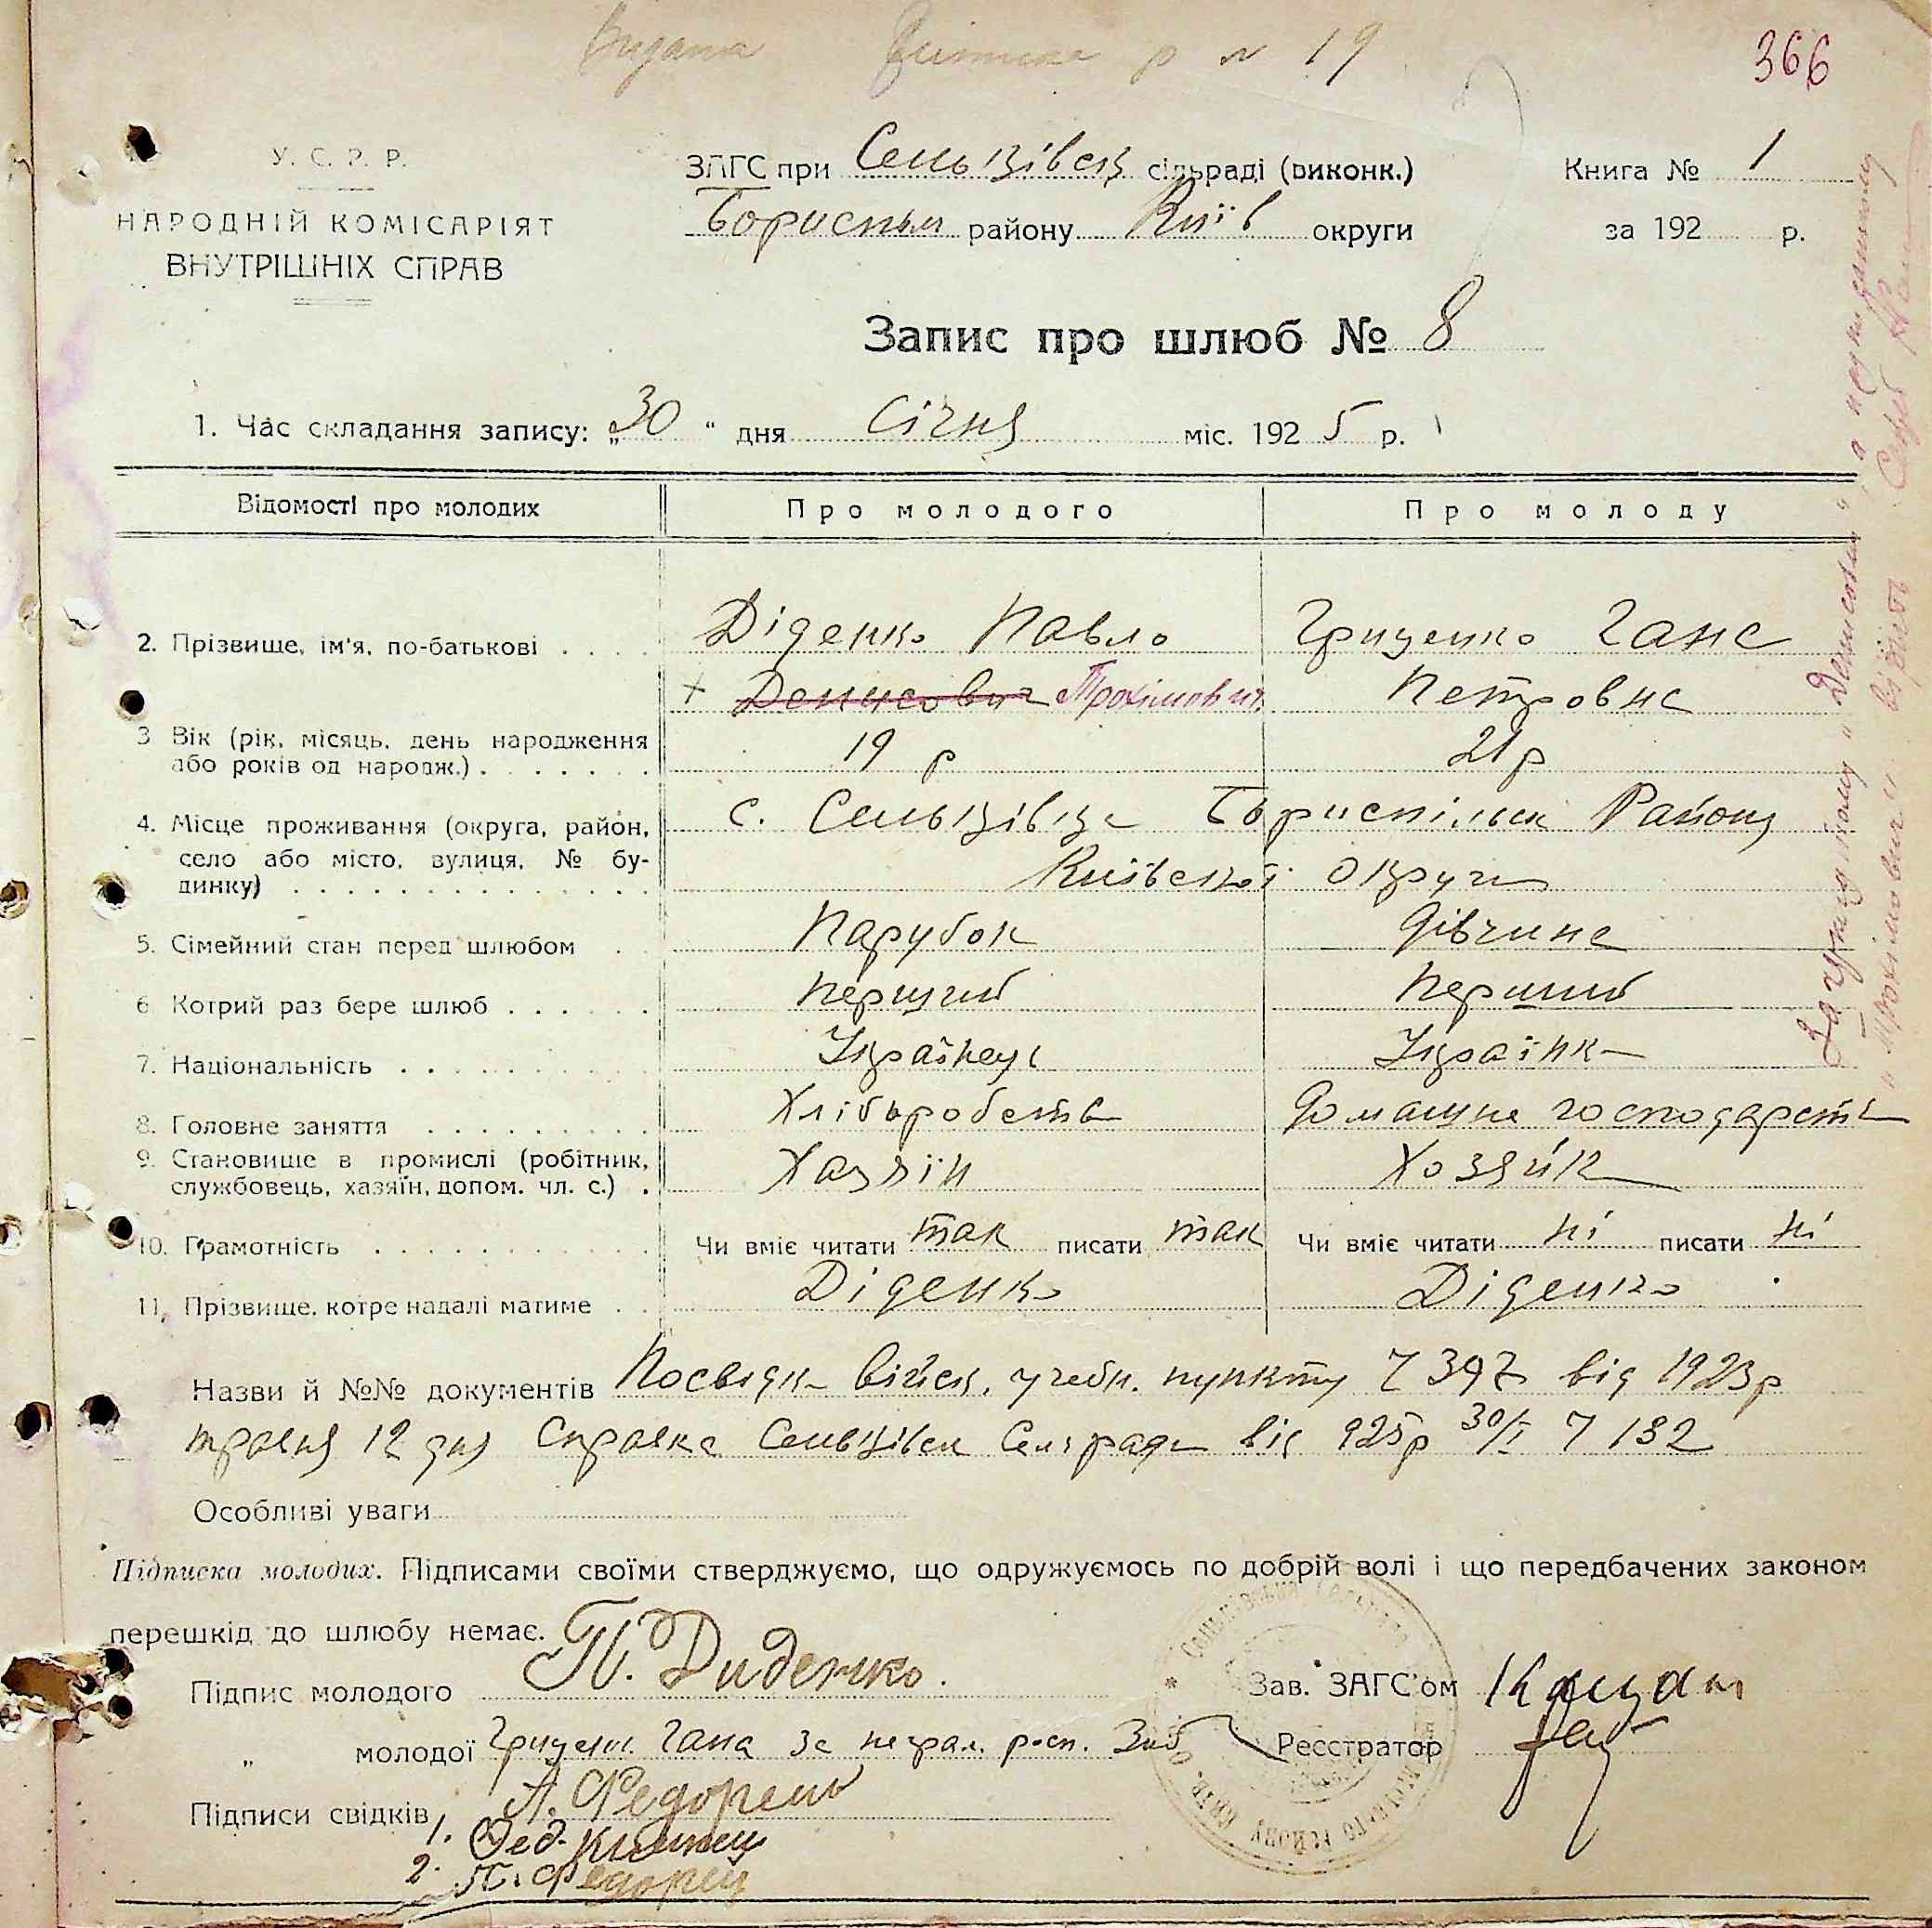 Видана Виписка р № 19
366
У. С. Р. Р.
НАРОДНІЙ КОМІСАРІЯТ
ВНУТРІШНІХ СПРАВ
ЗАГС при Сеньківськ сільраді (виконк.)
Бориспільськ району Київ округи
Книга № 1
за 192 р.
Запис про шлюб № 8
1. Час складання запису: „30 “ дня Січня міс. 1925 р.
Відомості про молодих Про молодого Про молоду
2. Прізвище, ім'я, по-батькові Діденко Павло Гриценко Гана
+ Денисович Трохимович Петровна
3 Вік (рік, місяць, день народження
або років од народж.) 19 р 21 р
4. Місце проживання (округа, район, с. Сеньківка Бориспільськ Району
село або місто, вулиця, № бу-
динку) Київської Округи
5. Сімейний стан перед шлюбом Парубок дівчина
6. Котрий раз бере шлюб Перший Перший
7. Національність Українець Українка
8. Головне заняття Хліборобство Домашнє господарство
9. Становище в промислі (робітник,
службовець, хазяїн, допом. чл. с.) Хазяїн Хозяйка
10. Грамотність Чи вміє читати так писати так Чи вміє читати ні писати ні
11. Прізвище, котре надалі матиме Діденко Діденко
Назви й №№ документів Посвідка війск. учебн. пункту 7397 від 1923 р
травня 12 дня Справка Сеньківськ Сельради від 925 р 30/I 7 132
Особливі уваги
Підписка молодих. Підписами своїми стверджуємо, що одружуємось по добрій волі і що передбачених законом
перешкід до шлюбу немає.
Підпис молодого П. Диденко.
Зав. ЗАГС'ом
„ молодої Грицен. Гана за неграм. росп.
Реєстратор
Підписи свідків А. Федорець
1. Фед.
2. П. Федорец
Закресленому „Денисович“ а
„Трохимович“ вірить